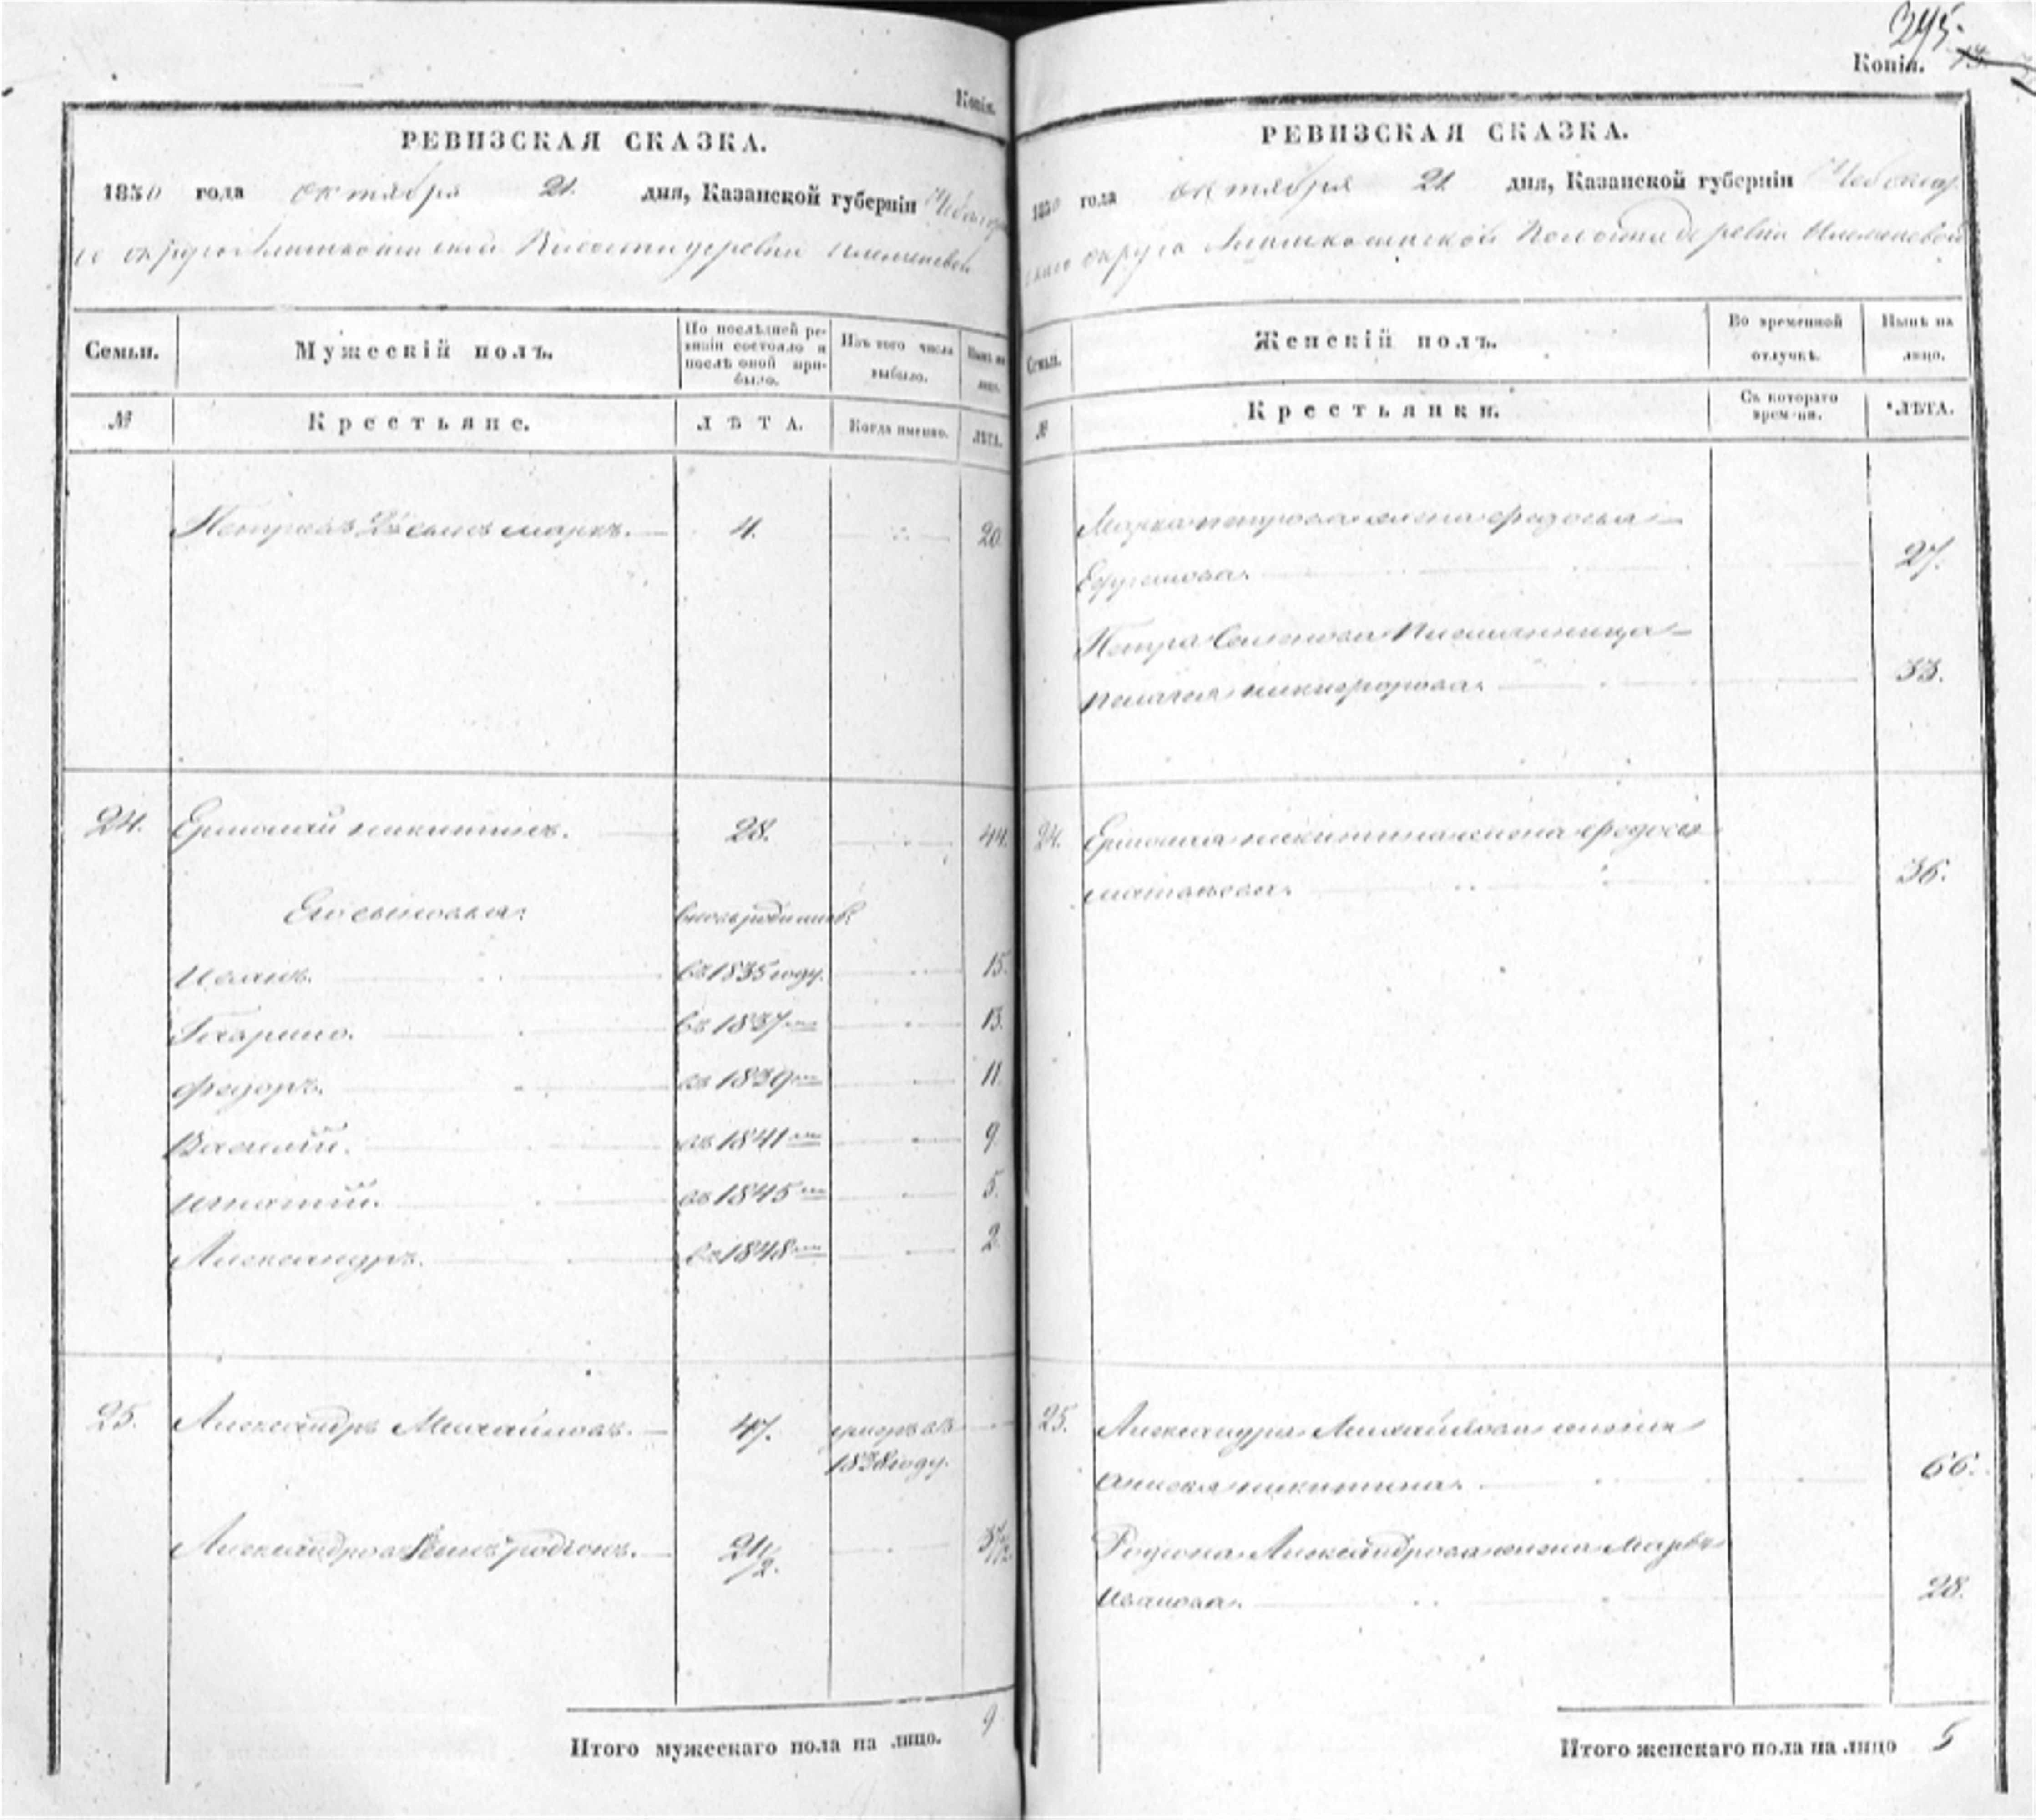 Копія.
РЕВИЗСКАЯ СКАЗКА.
1850 года октября 21. дня, Казанской губерніи Чебоксар
го округа волости деревни
Семьи.
Мужескій полъ.
По послѣдней ре-
визіи состояло и
послѣ оной при-
было.
Изъ того числа
выбыло.
Нынѣ на
лицо.
№
Крестьяне.
ЛѢТА.
Когда именно.
ЛѢТА.
Петрова 2й сынъ маркъ. 4. 20.
24. Ермолай никитинъ. 28. 44.
Его сыновья: вновь рожденные
Иванъ. въ 1835 году. 15.
въ 1837 13.
Федоръ. въ 1839 11.
Василій. въ 1841 9.
игнатій. въ 1845 5.
Александръ. въ 1848 2.
25. Александръ Михайловъ. 47. умеръ въ
1838 году.
Александрова сынъ родіонъ. 21/2.
Итого мужескаго пола на лицо. 9
295.
Копія.
РЕВИЗСКАЯ СКАЗКА.
1850 года октября 21 дня, Казанской губерніи Чебоксар
скаго округа волости деревни
Семьи.
Женскій полъ.
Во временной
отлучкѣ.
Нынѣ на
лицо.
№
Крестьянки.
Съ котораго
времени.
ЛѢТА.
Марка петрова жена федосья
Ефремова. 27.
Петра Семенова племянница
пелагея никифорова. 33.
24. Ермолая никитина жена федосья
36.
25. Александра Михайлова жена
никитина. 66.
Родиона Александрова жена Марья
Иванова. 28.
Итого женскаго пола на лицо 5